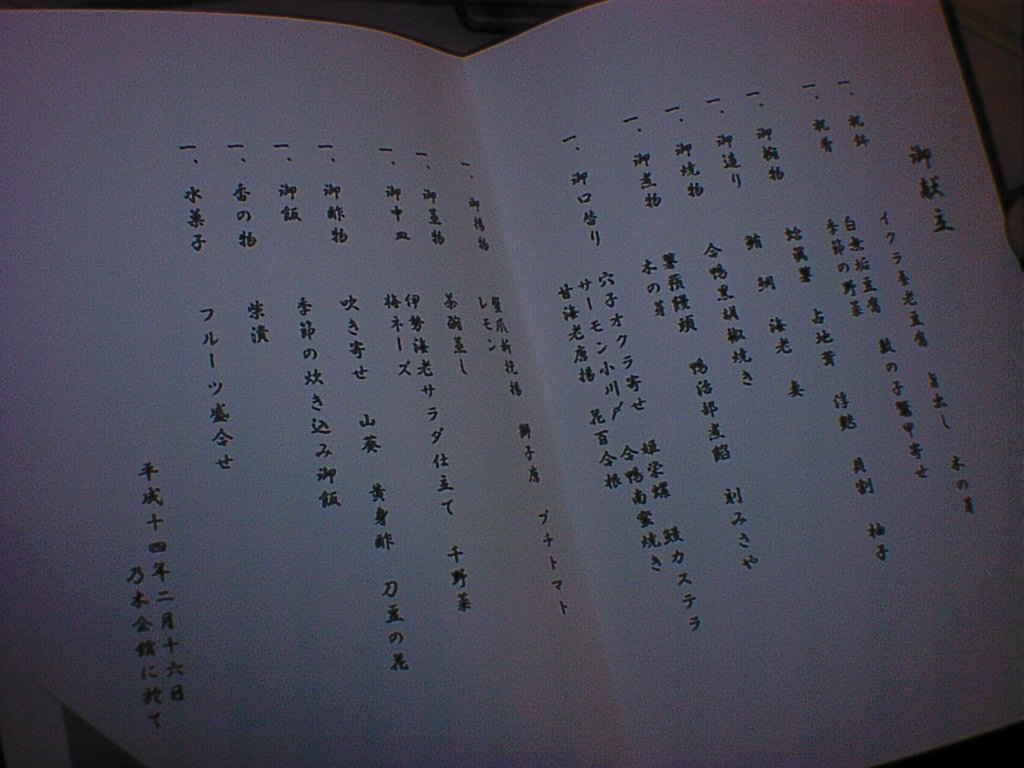 御献立
一、祝鉢
イクラ養老豆腐 旨出し 木の芽
一、祝肴
白煮垢豆腐 数の子鼈甲寄せ
季節の野菜
一、御椀物
蛤真薯 占地茸 淳熬 貝割 柚子
一、御造り
鮪 鯛 海老 妻
一、御焼物
合鴨黒胡椒焼き 刻みきゃ
一、御煮物
薯蕷饅頭 鴨治部煮餡
木の芽
一、御口替り
穴子オクラ寄せ 姫栄螺 鰻カステラ
サーモン小川〆 合鴨南蛮焼き
甘海老唐揚 花百合根
一、御揚物
蟹爪新挽揚 獅子唐 プチトマト
レモン
一、御蒸物
茶碗蒸し
一、御中皿
伊勢海老サラダ仕立て 千野菜
梅ネーズ
一、御酢物
吹き寄せ 山葵 黄身酢 刀豆の花
一、御飯
季節の炊き込み御飯
一、香の物
柴漬
一、水菓子
フルーツ盛合せ
平成十四年二月十六日
乃木会館に於て